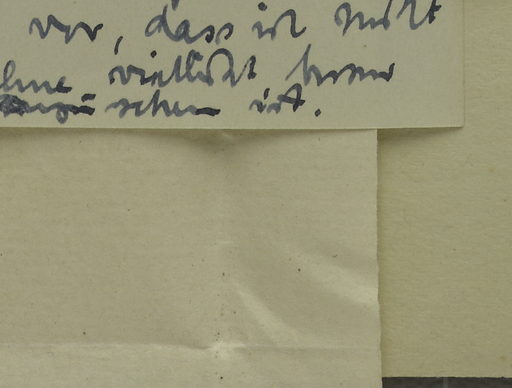 vor, dass ich nicht
vielleicht besser
schen ist.